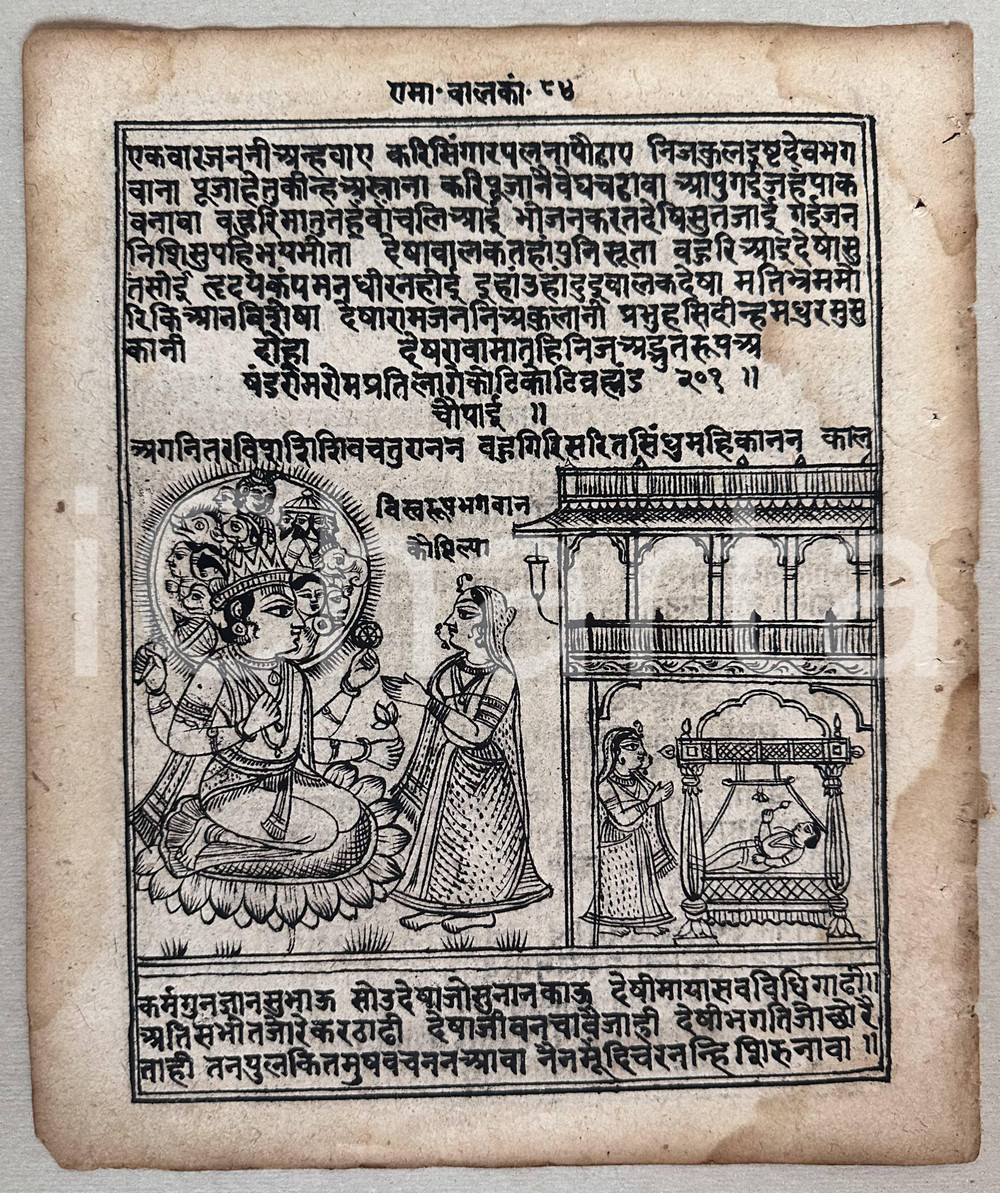 रामा॰ वालकां॰ ८४
एकवारजननीअन्हवाए करिसिंगारपलनापौढाए निजकुलइष्टदेवभग
वाना पूजाहेतुकीन्हअस्नाना करिपूजानैवेद्यचढावा आपुगईजहंपाक
वनावा वहुरिमातुतहंवांचलिआई भोजनकरतदेषिसुतजाई गईजन
निशिसुपहिभयभीता देषावालकतहांपुनिसूता वहुरिआइदेषासु
तसोई हृदयकंपमनधीरनहोई इहांउहांदुइवालकदेषा मतिभ्रममो
रिकिआनविशेषा देषारामजननिअकुलानी प्रभुहसिदीन्हमधुरमुसु
कानी दोहा देषरावामातुहिनिजअद्भुतरूपअ
षंडरोमरोमप्रतिलागेकोटिकोटिव्रह्मंड २०१ ॥
चौपाई ॥
अगनितरविशशिशिवचतुरानन वहुगिरिसरितसिंधुमहिकानन काल
विस्वरूपभगवान
कौशिल्या
कर्मगुनज्ञानसुभाऊ सोउदेषाजोसुनानकाऊ देषीमायासवविधिगाढी॥
अतिसभीतजोरेकरठाढी देषाजीवनचावैजाही देषीभगतिजोछोरै
ताही तनपुलकितमुषवचननआवा नैनमूंदिचरनन्हिशिरुनावा ॥